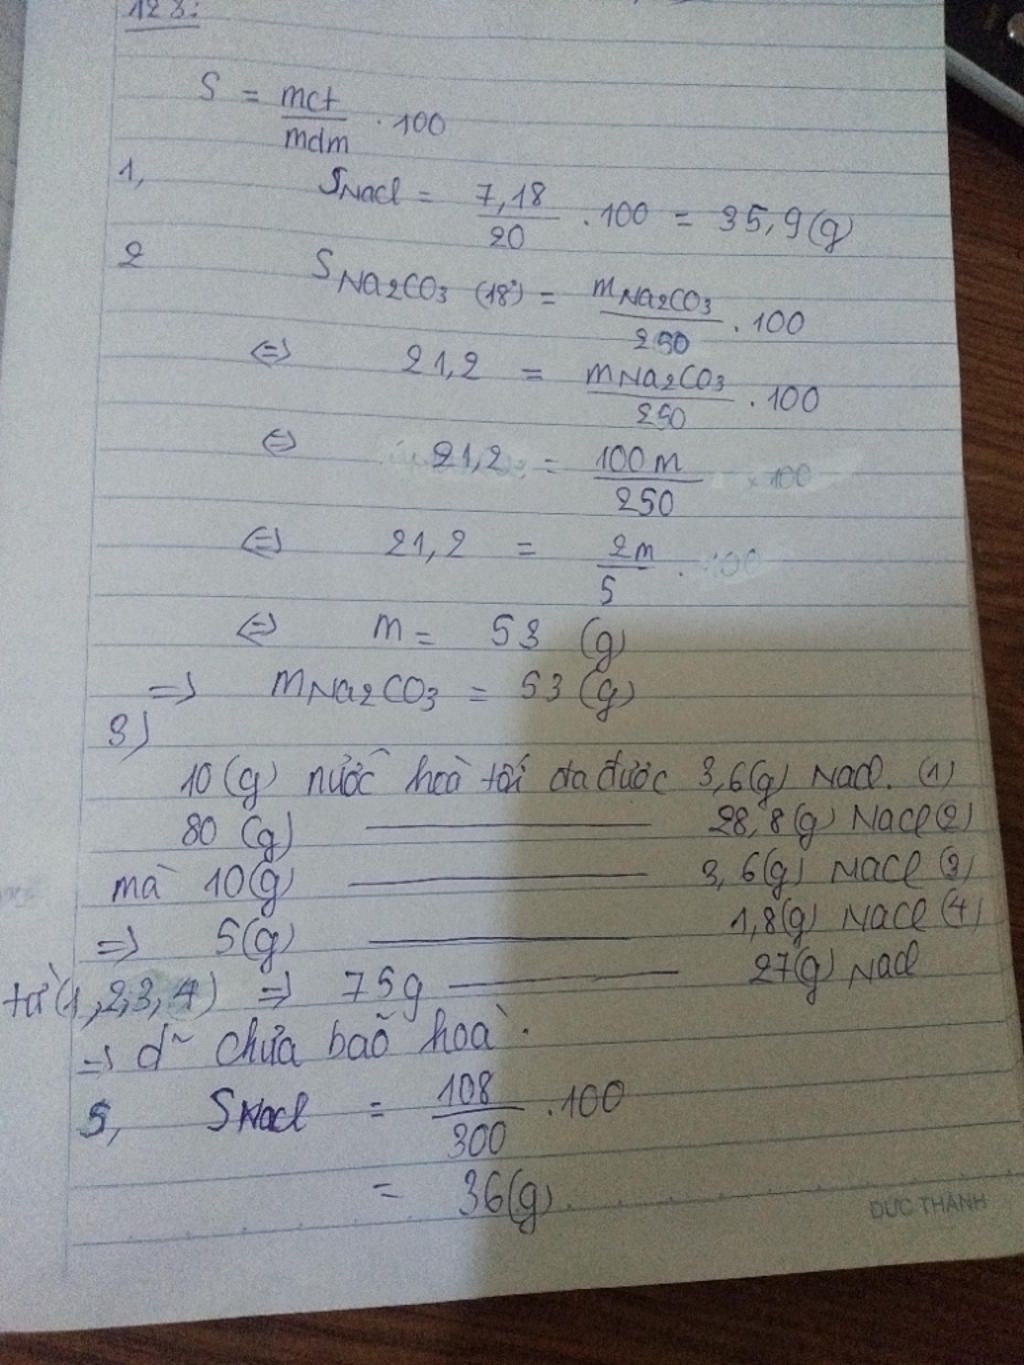 128:
S = mct/mdm . 100
1, SNacl = 7,18/20 . 100 = 35,9(g)
2 SNa2CO3 (18°) = mNa2CO3/250 . 100
⇔ 21,2 = mNa2CO3/250 . 100
⇔ 21,2 = 100m/250
⇔ 21,2 = 2m/5 .
⇔ m = 53 (g)
=> mNa2CO3 = 53 (g)
3)
10(g) nước hoà tối đa được 3,6(g) Nacl. (1)
80 (g) ——— 28,8(g) Nacl(2)
mà 10(g) ——— 3,6(g) Nacl (3)
=> 5(g) ——— 1,8(g) Nacl (4)
từ (1,2,3,4) => 75g ——— 27(g) Nacl
=> d~ chưa bão hoà.
5, SNacl = 108/300 . 100
= 36(g)
ĐỨC THÀNH